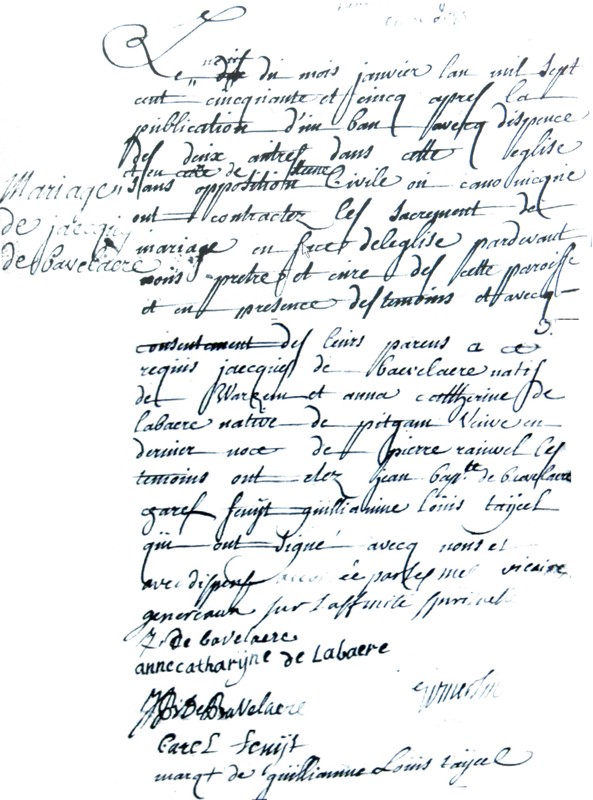 Le neuf du mois janvier lan mil sept
cent cincquante et cincq apres la
publication d'un ban avecq dispence
des deux autres dans cette eglise
et en celle de
Mariage
de jacques
de bavelaere
sans opposition civile ou canonicque
ont contractez les sacrement de
mariage en face deleglise pardevant
nous pretre et cure des cette paroisse
et en presence des temoins et avecq
consentement des leurs parens a ce
requis jaecques de baevelaere natif
de Warhem et anna catherine de
labaere native de pitgam veuve en
dernier noce de pierre rainvel les
temoins ont etez jean bap.tte de bavelaere
carel feuijt guillianine loüis taijeel
qui ont signé avecq nous et
avec dispens par les mes vicaire
genereaux sur l'affinite spirituel
J. de bavelaere
annecatharijne de Labaere
JB De BaVelaere
Carel feuijt
marqt de guillianine Louis taijeel